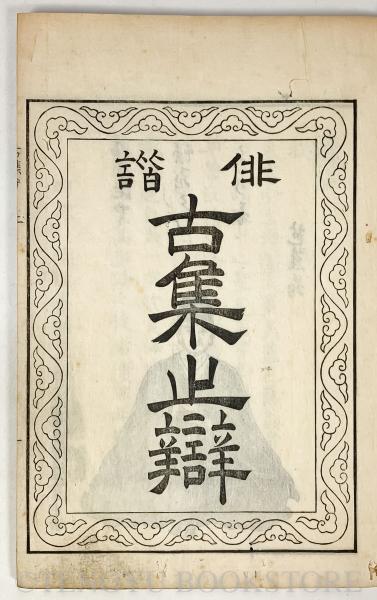 俳諧
古集之辯
TENGYU BOOKSTORE